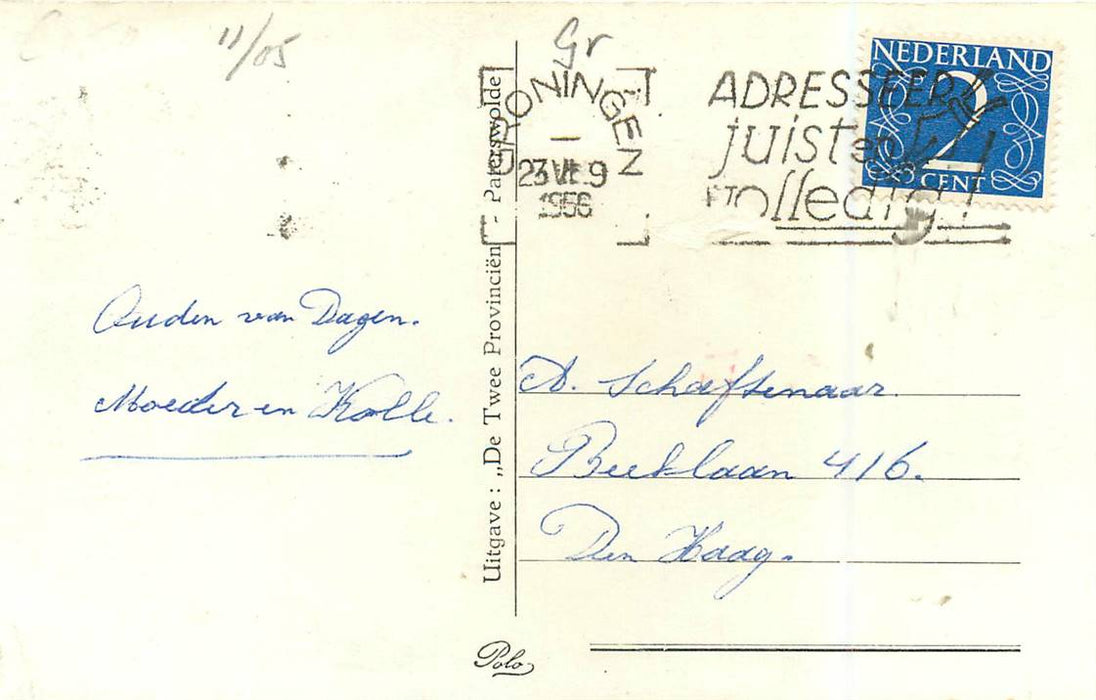 11/05
Gr
GRONINGEN
23 VI 9
1956
ADRESSEER
juist en
volledig!
NEDERLAND
2
CENT
Ouden van Dagen.
Moeder en Kolle.
Uitgave: „De Twee Provinciën" - Paterswolde
A. Schaftenaar.
Beeklaan 416.
Den Haag.
Polo